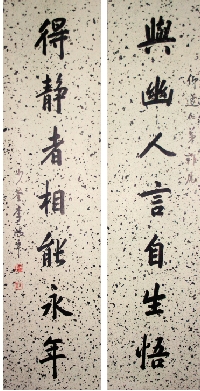 與幽人言自生悟
得静者相能永年